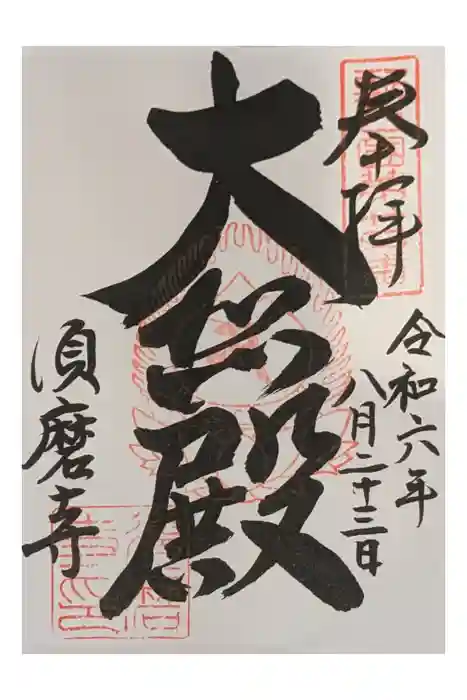 奉拝
令和六年
八月二十三日
大悲殿
須磨寺